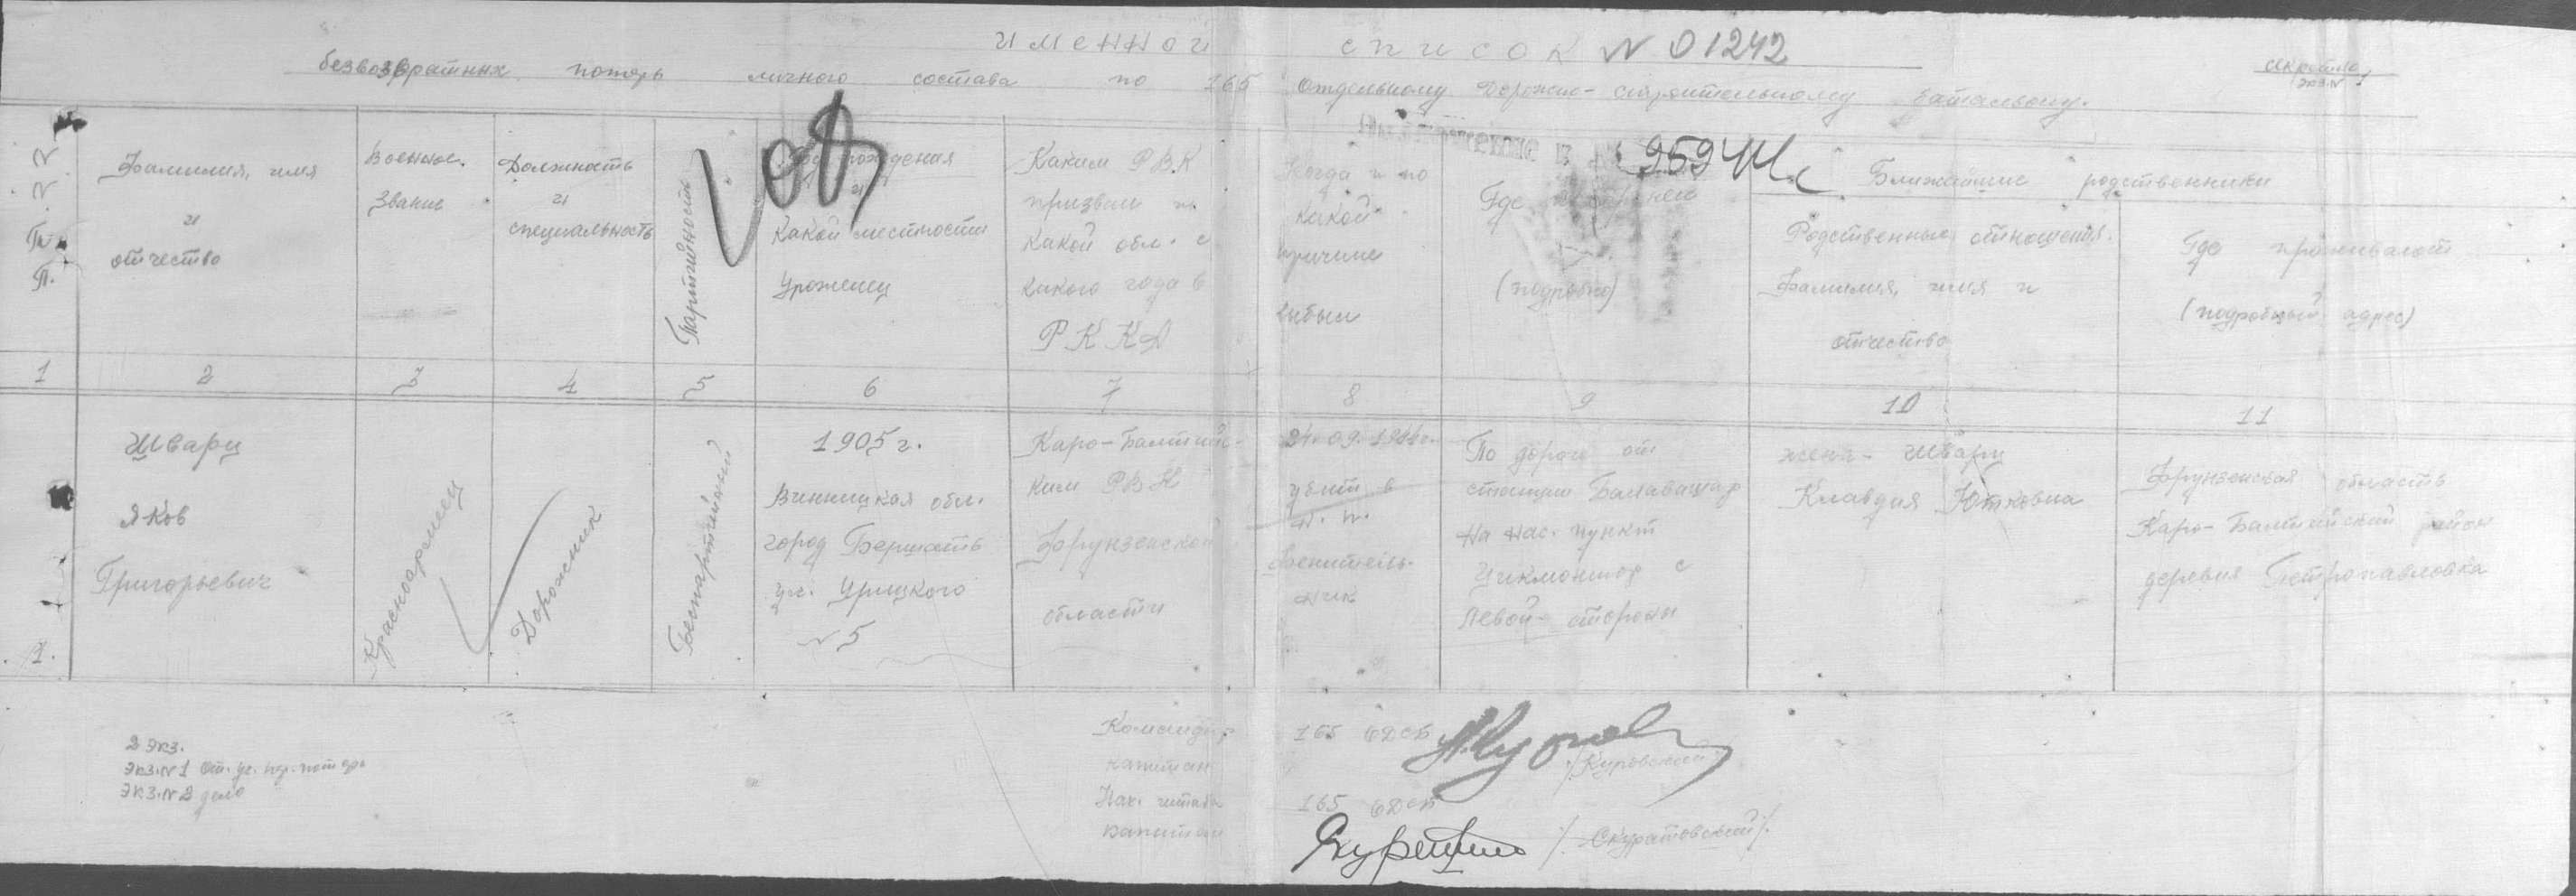 Именной список № 01242
безвозвратных потерь личного состава по 165 отдельному Дорожно-строительному батальону.
Секретно
экз. № 1
№№ П. П.
Фамилия, имя
и
отчество
Военное
звание
Должность
и
специальность
Партийность
рождения
и
какой местности
уроженец
Каким Р.В.К
призван и
какой обл. с
какого года в
РККА
Когда и по
какой
причине
выбыл
95944с
Где
(подробно)
Ближайшие родственники
Родственные отношения.
Фамилия, имя и
отчество
Где проживают
(подробный адрес)
1 2 3 4 5 6 7 8 9 10 11
1.
Шварц
Яков
Григорьевич
Красноармеец
Дорожник
Беспартийный
1905 г.
Винницкая обл.
город Бершать
ул. Урицкого
№ 5
Каро-Балтийс-
ким РВК
Фрунзенской
области
24.09.1944г.
убит в
н. п.
По дороге от
станции
на нас. пункт
с
левой стороны
жена - Шварц
Клавдия Ютковна
Фрунзенская область
Каро-Балтийский район
деревня Петропавловка
2 экз.
Экз. № 1 от. уч. пер. потерь
Экз. № 2 дело
Командир 165 ОДСБ
капитан /Куровский/
Нач. штаба 165 ОДСБ
капитан /Скуратовский/